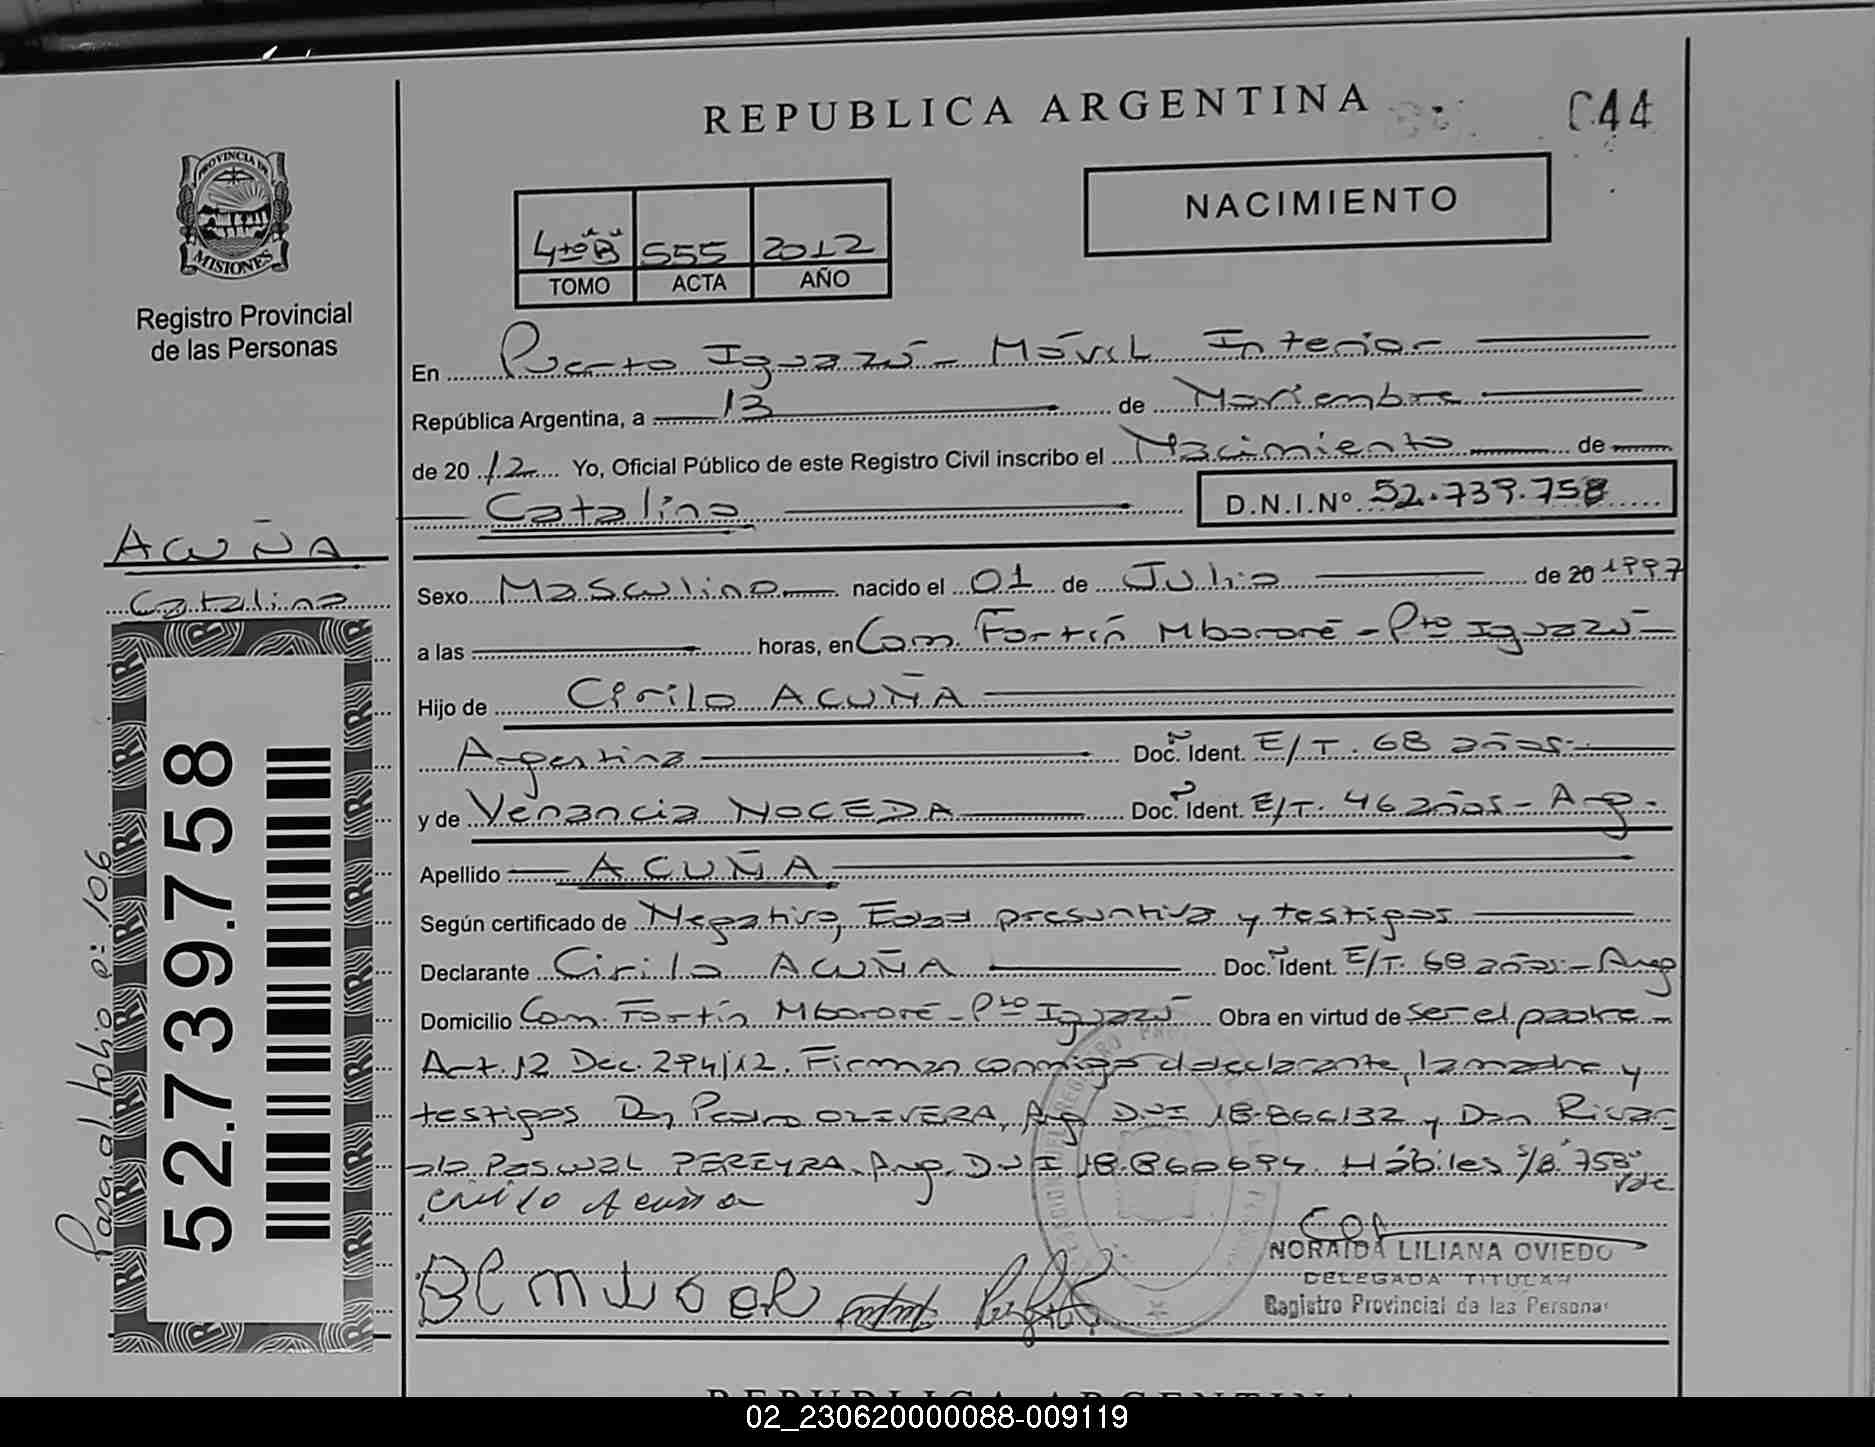 REPUBLICA ARGENTINA
C44
NACIMIENTO
4to "B" 555 2012
TOMO ACTA AÑO
PROVINCIA DE
MISIONES
Registro Provincial
de las Personas
En Puerto Iguazú - Móvil Interior
República Argentina, a 13 de Noviembre
de 20 12 Yo, Oficial Público de este Registro Civil inscribo el Nacimiento de
Catalino D.N.I.Nº 52.739.758
ACUÑA
Catalino
Sexo Masculino nacido el 01 de Julio de 20 1997
a las horas, en Com. Fortín Mbororé - Pto Iguazú -
Hijo de Cirilo ACUÑA
Argentina Doc. Ident. E/T. 68 años.
y de Venancia NOCEDA Doc. Ident. E/T. 46 años - Arg.
Apellido ACUÑA
Según certificado de Negativo, Edad presuntiva y testigos
Declarante Cirilo ACUÑA Doc. Ident. E/T. 68 años - Arg
Domicilio Com. Fortín Mbororé - Pto Iguazú Obra en virtud de ser el padre -
Art. 12 Dec. 294/12. Firman conmigo el declarante, la madre y
testigos Don Pedro OLIVERA, Arg. DNI 18.866132 y Don Ricar
do Pascual PEREYRA. Arg. DNI 18.860694. Hábiles S/B "758"
Vale
Cirilo Acuña
NORAIDA LILIANA OVIEDO
DELEGADA TITULAR
Registro Provincial de las Personas
52.739.758
Pasa al folio nº: 106
REPUBLICA ARGENTINA
02_230620000088-009119